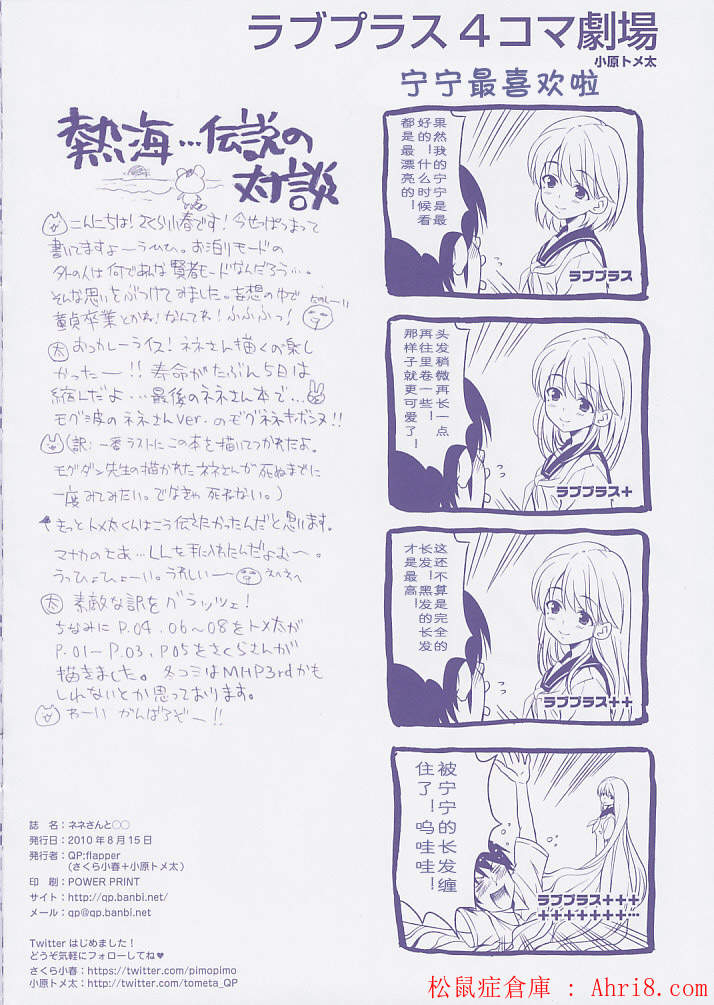 ラブプラス4コマ劇場
小原トメ太
宁宁最喜欢啦
熱海…伝説の
対談
こんにちは！さくら小春です！今せっぱつまって
書いてますよーうひひ。お泊りモードの
外の人は何であんな賢者モードなんだろう…。
そんな思いをぶつけてみました。妄想の中で
童貞卒業とかね！なんてね！ふふふっ！
太 おっカレーライス！ネネさん描くの楽し
かったー!! 寿命がたぶん5日は
縮んだよ…最後のネネさん本で…
モグ波のネネさんver.のモグネネキボンヌ!!
(訳:一番ラストにこの本を描いてつかれたよ。
モグダン先生の描かれたネネさんが死ぬまでに
一度みてみたい。でなきゃ死ねない。)
きっとトメ太くんはこう伝えたかったんだと思います。
マナカのとあ…LLを手に入れたんだよむ〜。
うっひょひょーい。うれしいー
太 素敵な訳をグラッツェ！
ちなみにP.04、06〜08をトメ太が
P.01ーP.03、P05をさくらさんが
描きました。冬コミはMHP3rdかも
しれないとか思っております。
わーい がんばるぞー!!
果然我的宁宁是最
好的！什么时候看
都是最漂亮的！
ラブプラス
头发稍微再长一点
再往里卷一些！
那样子就更可爱了！
ラブプラス+
这还不算是完全的
长发！黑发的长发
才是最高！
ラブプラス++
被宁宁的长发缠
住了！呜哇哇！
ラブプラス+++
+++++++…
誌 名：ネネさんと○○
発行日：2010年8月15日
発行者：QP:flapper
(さくら小春＋小原トメ太)
印 刷：POWER PRINT
サイト：http://qp.banbi.net/
メール：qp@qp.banbi.net
Twitter はじめました！
どうぞ気軽にフォローしてね♥
さくら小春：https://twitter.com/pimopimo
小原トメ太：http://twitter.com/tometa_QP
松鼠症倉庫 : Ahri8.com